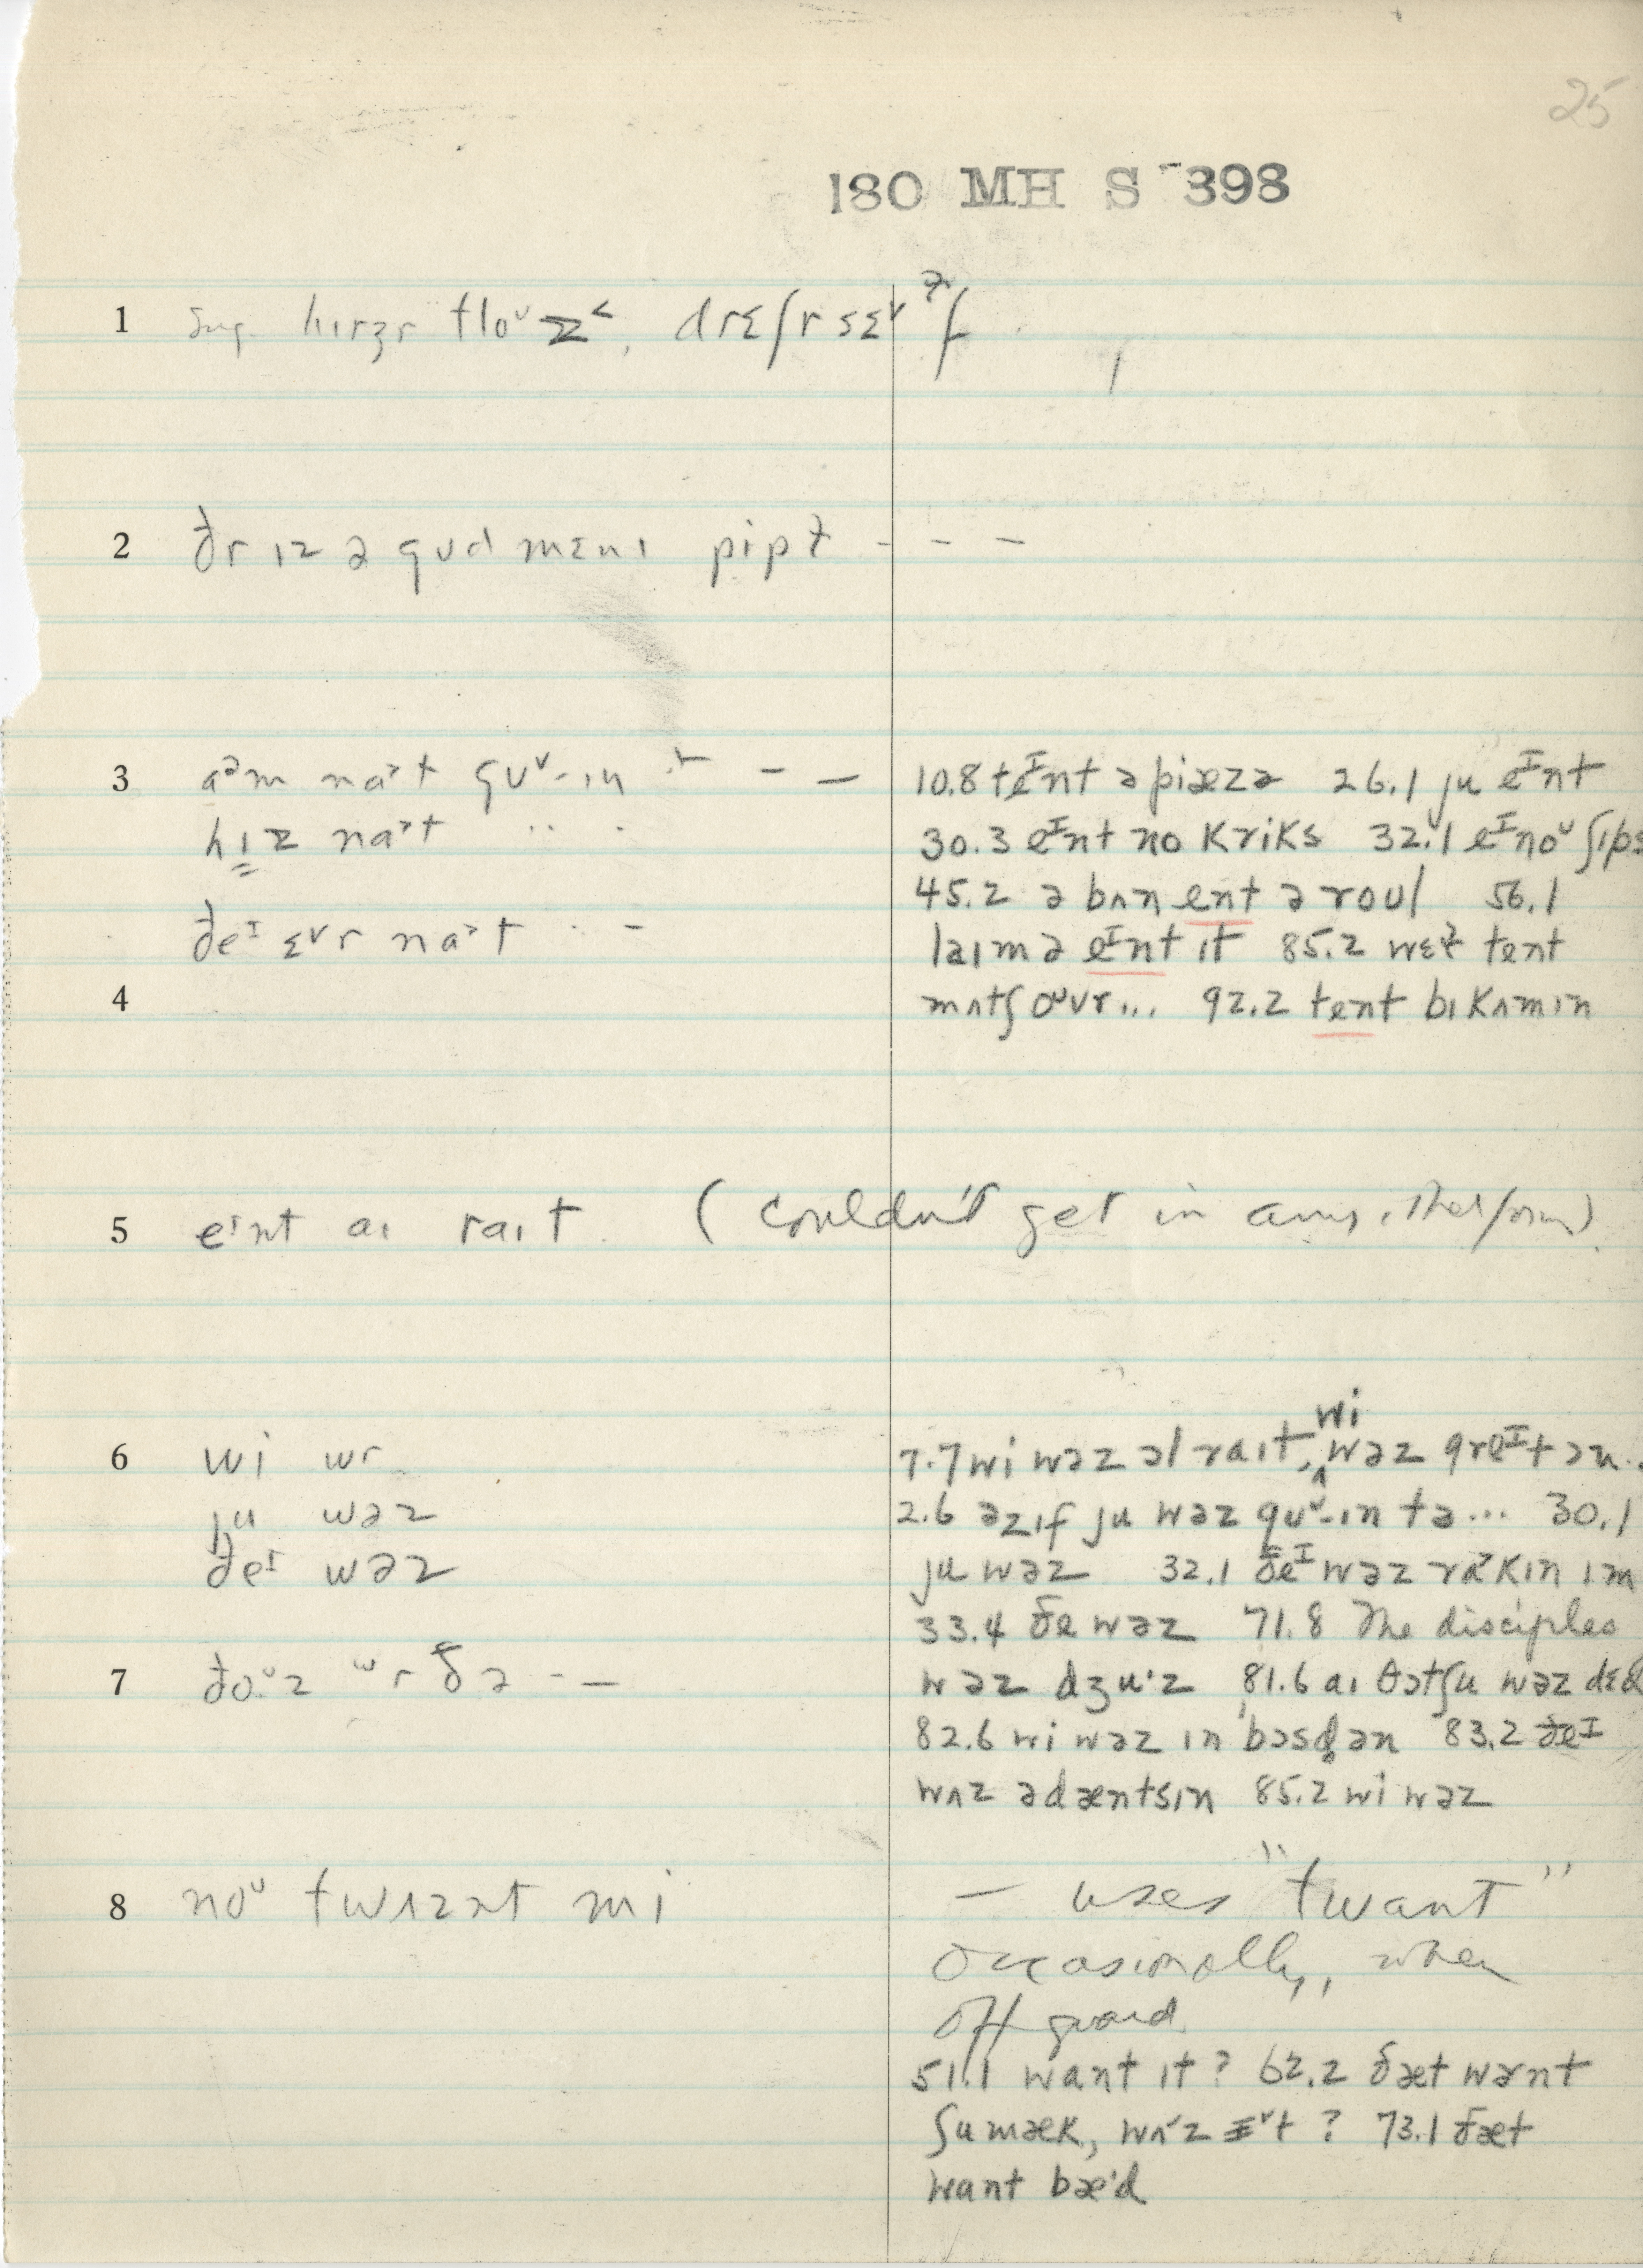 25
180 MH S 398
1 hɪrʒr tloᵛz˂, drɛʃr sɛᵛɫf
2 ðr ɪz ə gud mɛnɪ pipɫ - - -
3 aᵊm naᵓt guᵛ-ɪn - —
hɪz naᵓt
ðeᴵ ɛᵛr naᵓt
10.8 teᴵnt ə piæzə 26.1 ju eᴵnt
30.3 eᴵnt no kriks 32.1 eᴵ noᵛ ʃɪps
45.2 ə bʌn ent ə roul 56.1
laɪm ə eᴵnt ɪt 85.2 wɛɫ tent
4
mʌtʃ oᵘvr... 92.2 tent bɪkʌmɪn
5 eᴵnt aɪ raɪt (couldn't get in any other form)
6 wi wr
ju wəz
ðeᴵ wəz
7.7 wi wəz ɔl raɪt, wi wəz greᴵt ɔn..
2.6 əzɪf ju wəz guᵛ-ɪn tə... 30.1
ju wəz 32.1 ðeᴵ wəz raᵓkɪn ɪm
33.4 ðe wəz 71.8 The disciples
7 ðoᵛz wr ðə - —
wəz dʒu·z 81.6 aɪ θɔtʃu wəz dɛd
82.6 wi wəz ɪn bɔsdən 83.2 ðeᴵ
wʌz ədæntsɪn 85.2 wi wəz
8 noᵛ twʌznt mi
— uses "twant"
occasionally, when
off guard
51.1 want ɪt? 62.2 ðæt wərnt
ʃumæk, wʌ·z ɪᵛt? 73.1 ðæt
want bæ·d